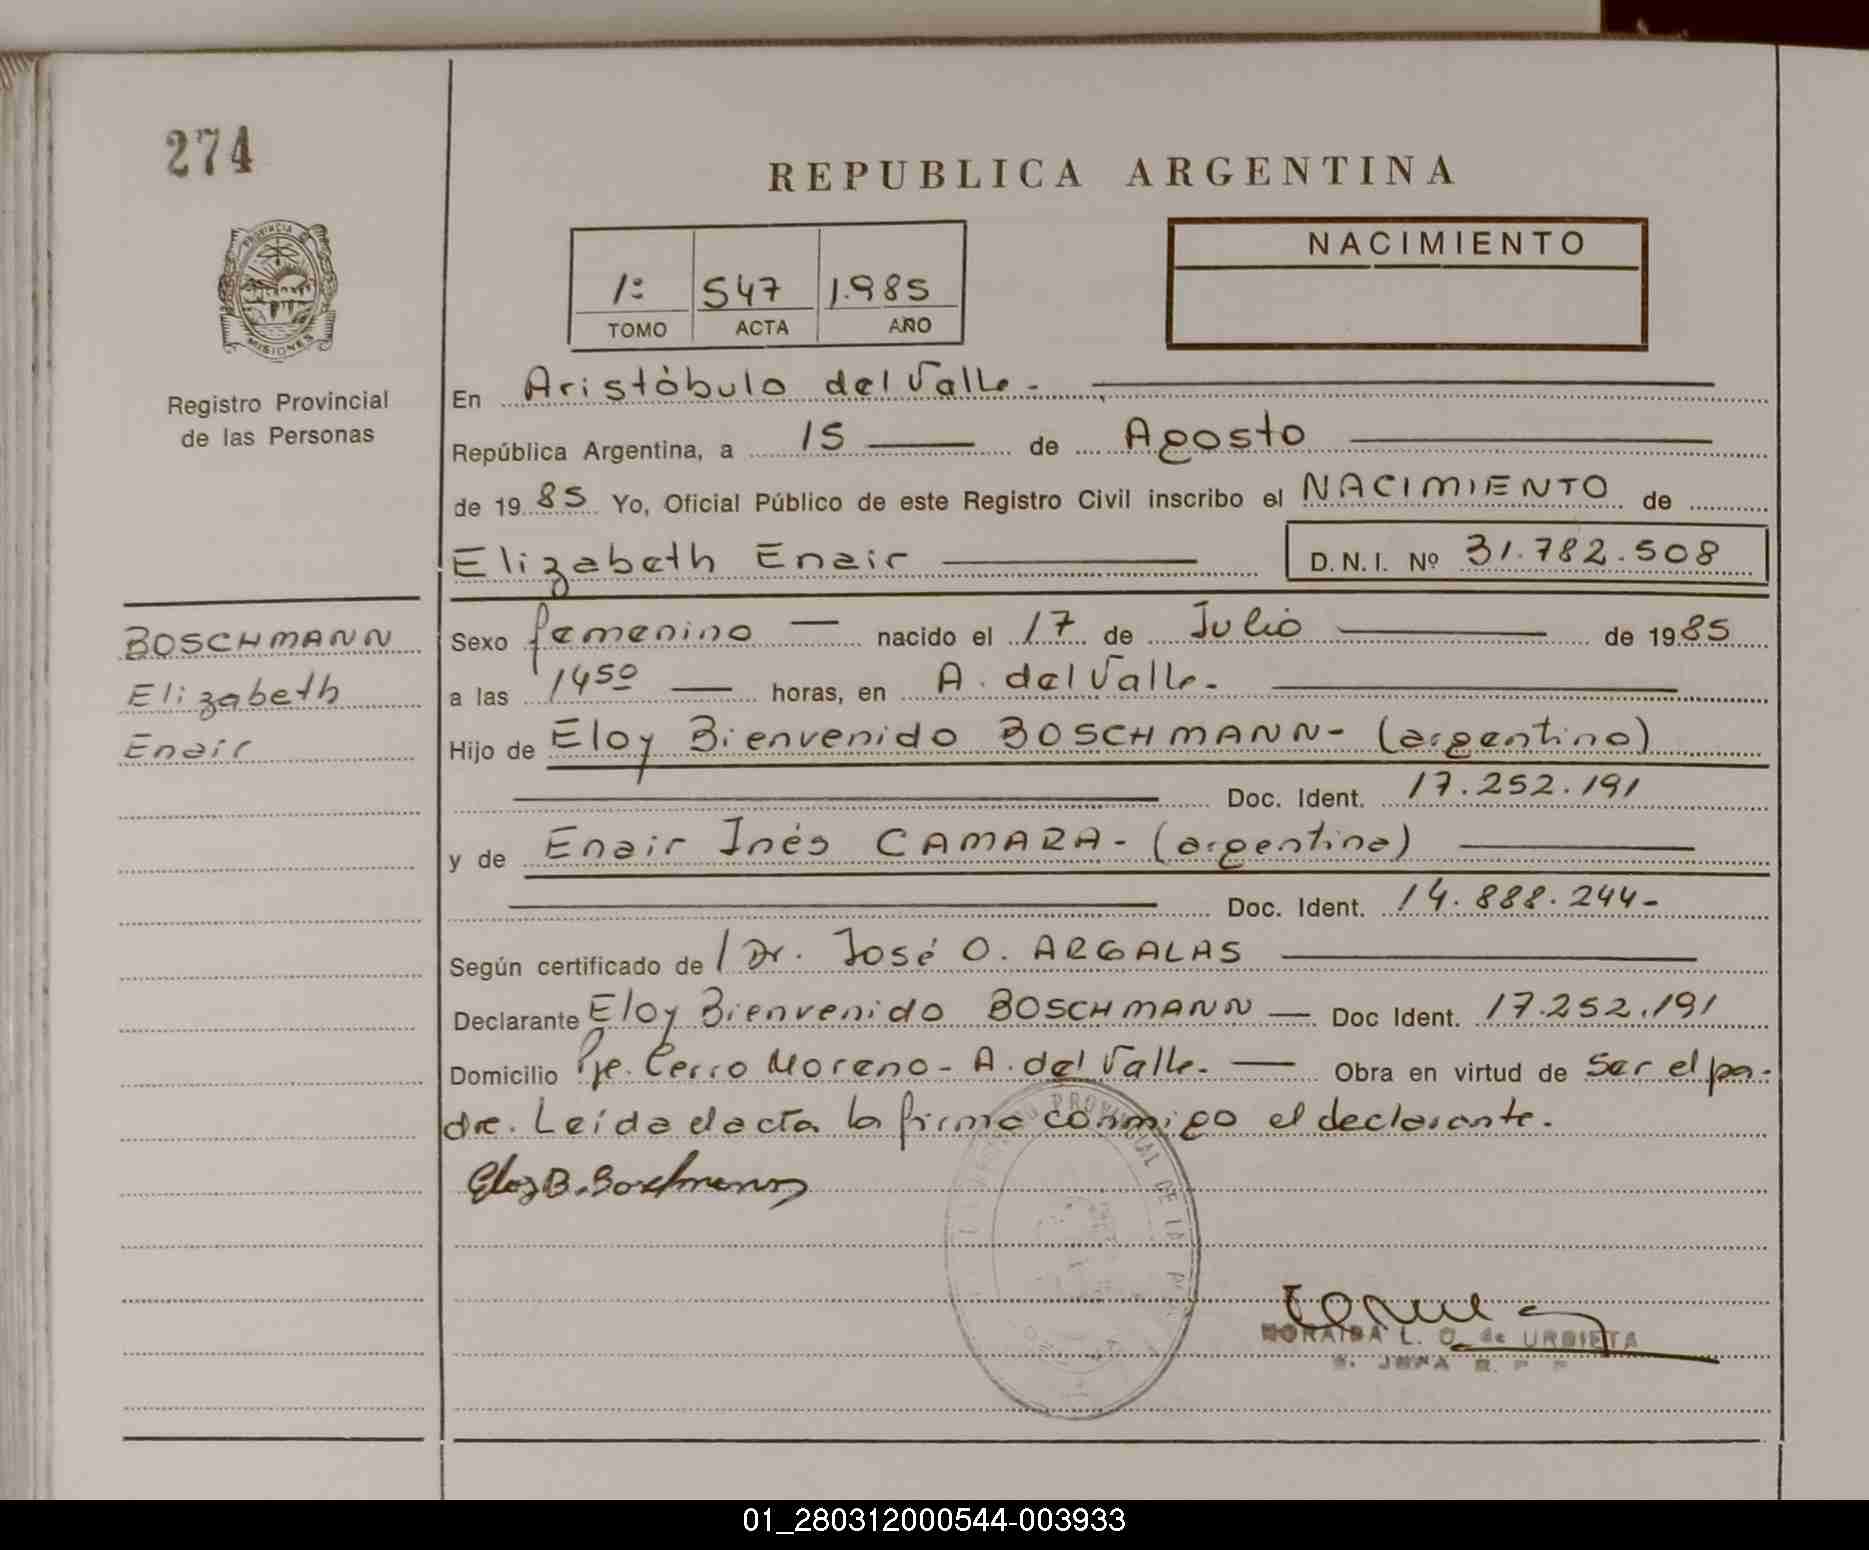 274
REPUBLICA ARGENTINA
PROVINCIA DE
MISIONES
Registro Provincial
de las Personas
1º 547 1.985
TOMO ACTA AÑO
NACIMIENTO
En Aristóbulo del Valle.-
República Argentina, a 15 de Agosto
de 1985 Yo, Oficial Público de este Registro Civil inscribo el NACIMIENTO de
Elizabeth Enair D.N.I. Nº 31.782.508
BOSCHMANN
Elizabeth
Enair
Sexo femenino — nacido el 17 de Julio de 1985
a las 1450 — horas, en A. del Valle.-
Hijo de Eloy Bienvenido BOSCHMANN- (argentino)
Doc. Ident. 17.252.191
y de Enair Inés CAMARA- (argentina)
Doc. Ident. 14.888.244-
Según certificado de / Dr. José O. ARGALAS
Declarante Eloy Bienvenido BOSCHMANN — Doc Ident. 17.252.191
Domicilio Pje. Cerro Moreno- A. del Valle.- — Obra en virtud de ser el pa-
dre. Leída el acta la firma conmigo el declarante.
Eloy B. Boschmann
PROVINCIAL DE LAS
L. C. de URBIETA
01_280312000544-003933